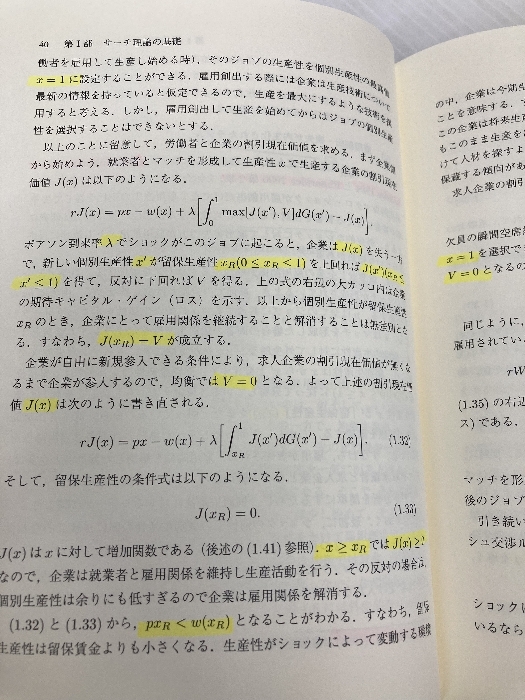 40　第Ⅰ部　サーチ理論の基礎
働者を雇用して生産し始める時），そのジョブの生産性を個別生産性の最高値
x = 1 に設定することができる．雇用創出する際には企業は生産技術について
最新の情報を持っていると仮定できるので，生産を最大にするような技術を採
用すると考える．しかし，雇用創出して生産を始めてからはジョブの個別生産
性を選択することはできないとする．
以上のことに留意して，労働者と企業の割引現在価値を求める．まず企業側
から始めよう．就業者とマッチを形成して生産性 x で生産する企業の割引現在
価値 J(x) は以下のようになる．
rJ(x) = px − w(x) + λ[∫₀¹ max[J(x′), V]dG(x′) − J(x)].
ポアソン到来率 λ でショックがこのジョブに起こると，企業は J(x) を失う一方
で，新しい個別生産性 x′ が留保生産性 x_R(0 ≤ x_R < 1) を上回れば J(x′)(x_R ≤
x′ < 1) を得て，反対に下回れば V を得る．上の式の右辺の大カッコ内は企業
の期待キャピタル・ゲイン（ロス）を示す．以上から個別生産性が留保生産性
x_R のとき，企業にとって雇用関係を継続することと解消することは無差別とな
る．すなわち，J(x_R) = V が成立する．
企業が自由に新規参入できる条件により，求人企業の割引現在価値が無くな
るまで企業が参入するので，均衡では V = 0 となる．よって上述の割引現在価
値 J(x) は次のように書き直される．
rJ(x) = px − w(x) + λ[∫_{x_R}^1 J(x′)dG(x′) − J(x)]. (1.32)
そして，留保生産性の条件式は以下のようになる．
J(x_R) = 0. (1.33)
J(x) は x に対して増加関数である（後述の (1.41) 参照）．x ≥ x_R では J(x) ≥
なので，企業は就業者と雇用関係を維持し生産活動を行う．その反対の場合は，
個別生産性は余りにも低すぎるので企業は雇用関係を解消する．
(1.32) と (1.33) から，px_R < w(x_R) となることがわかる．すなわち，留保
生産性は留保賃金よりも小さくなる．生産性がショックによって変動する環境
の中，企業は今期生
ことを意味する．
この企業は将来生産
もこのまま生産を
けて人材を探すよ
保蔵する傾向があ
求人企業の割引
欠員の瞬間空席
x = 1 を選択でき
V = 0 となるの
同じように，
雇用されてい
rW
(1.35) の右辺
ス）である．
マッチを形
後のジョブ
引き続い
シュ交渉ル
ショック
いるなら